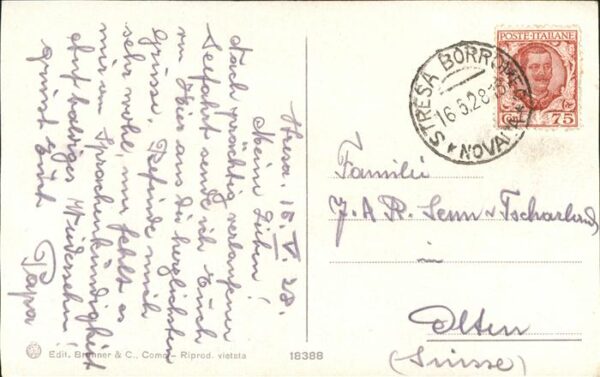 Stresa. 15. V. 28.
Meine Lieben!
Nach prächtig verlaufener
Seefahrt sende ich Euch
von hier aus die herzlichsten
Grüsse. Befinde mich
sehr wohl, nur fehlt es
mir an Sprachenkundigkeit
Auf baldiges Wiedersehn!
grüsst Euch
Papa
POSTE ITALIANE
75
STRESA BORROMEO
16.5.28
* NOVARA *
Familie
J. A. R. Senn-v. Tscharland
in
Olten
(Suisse)
Edit. Brunner & C., Como - Riprod. vietata
18388